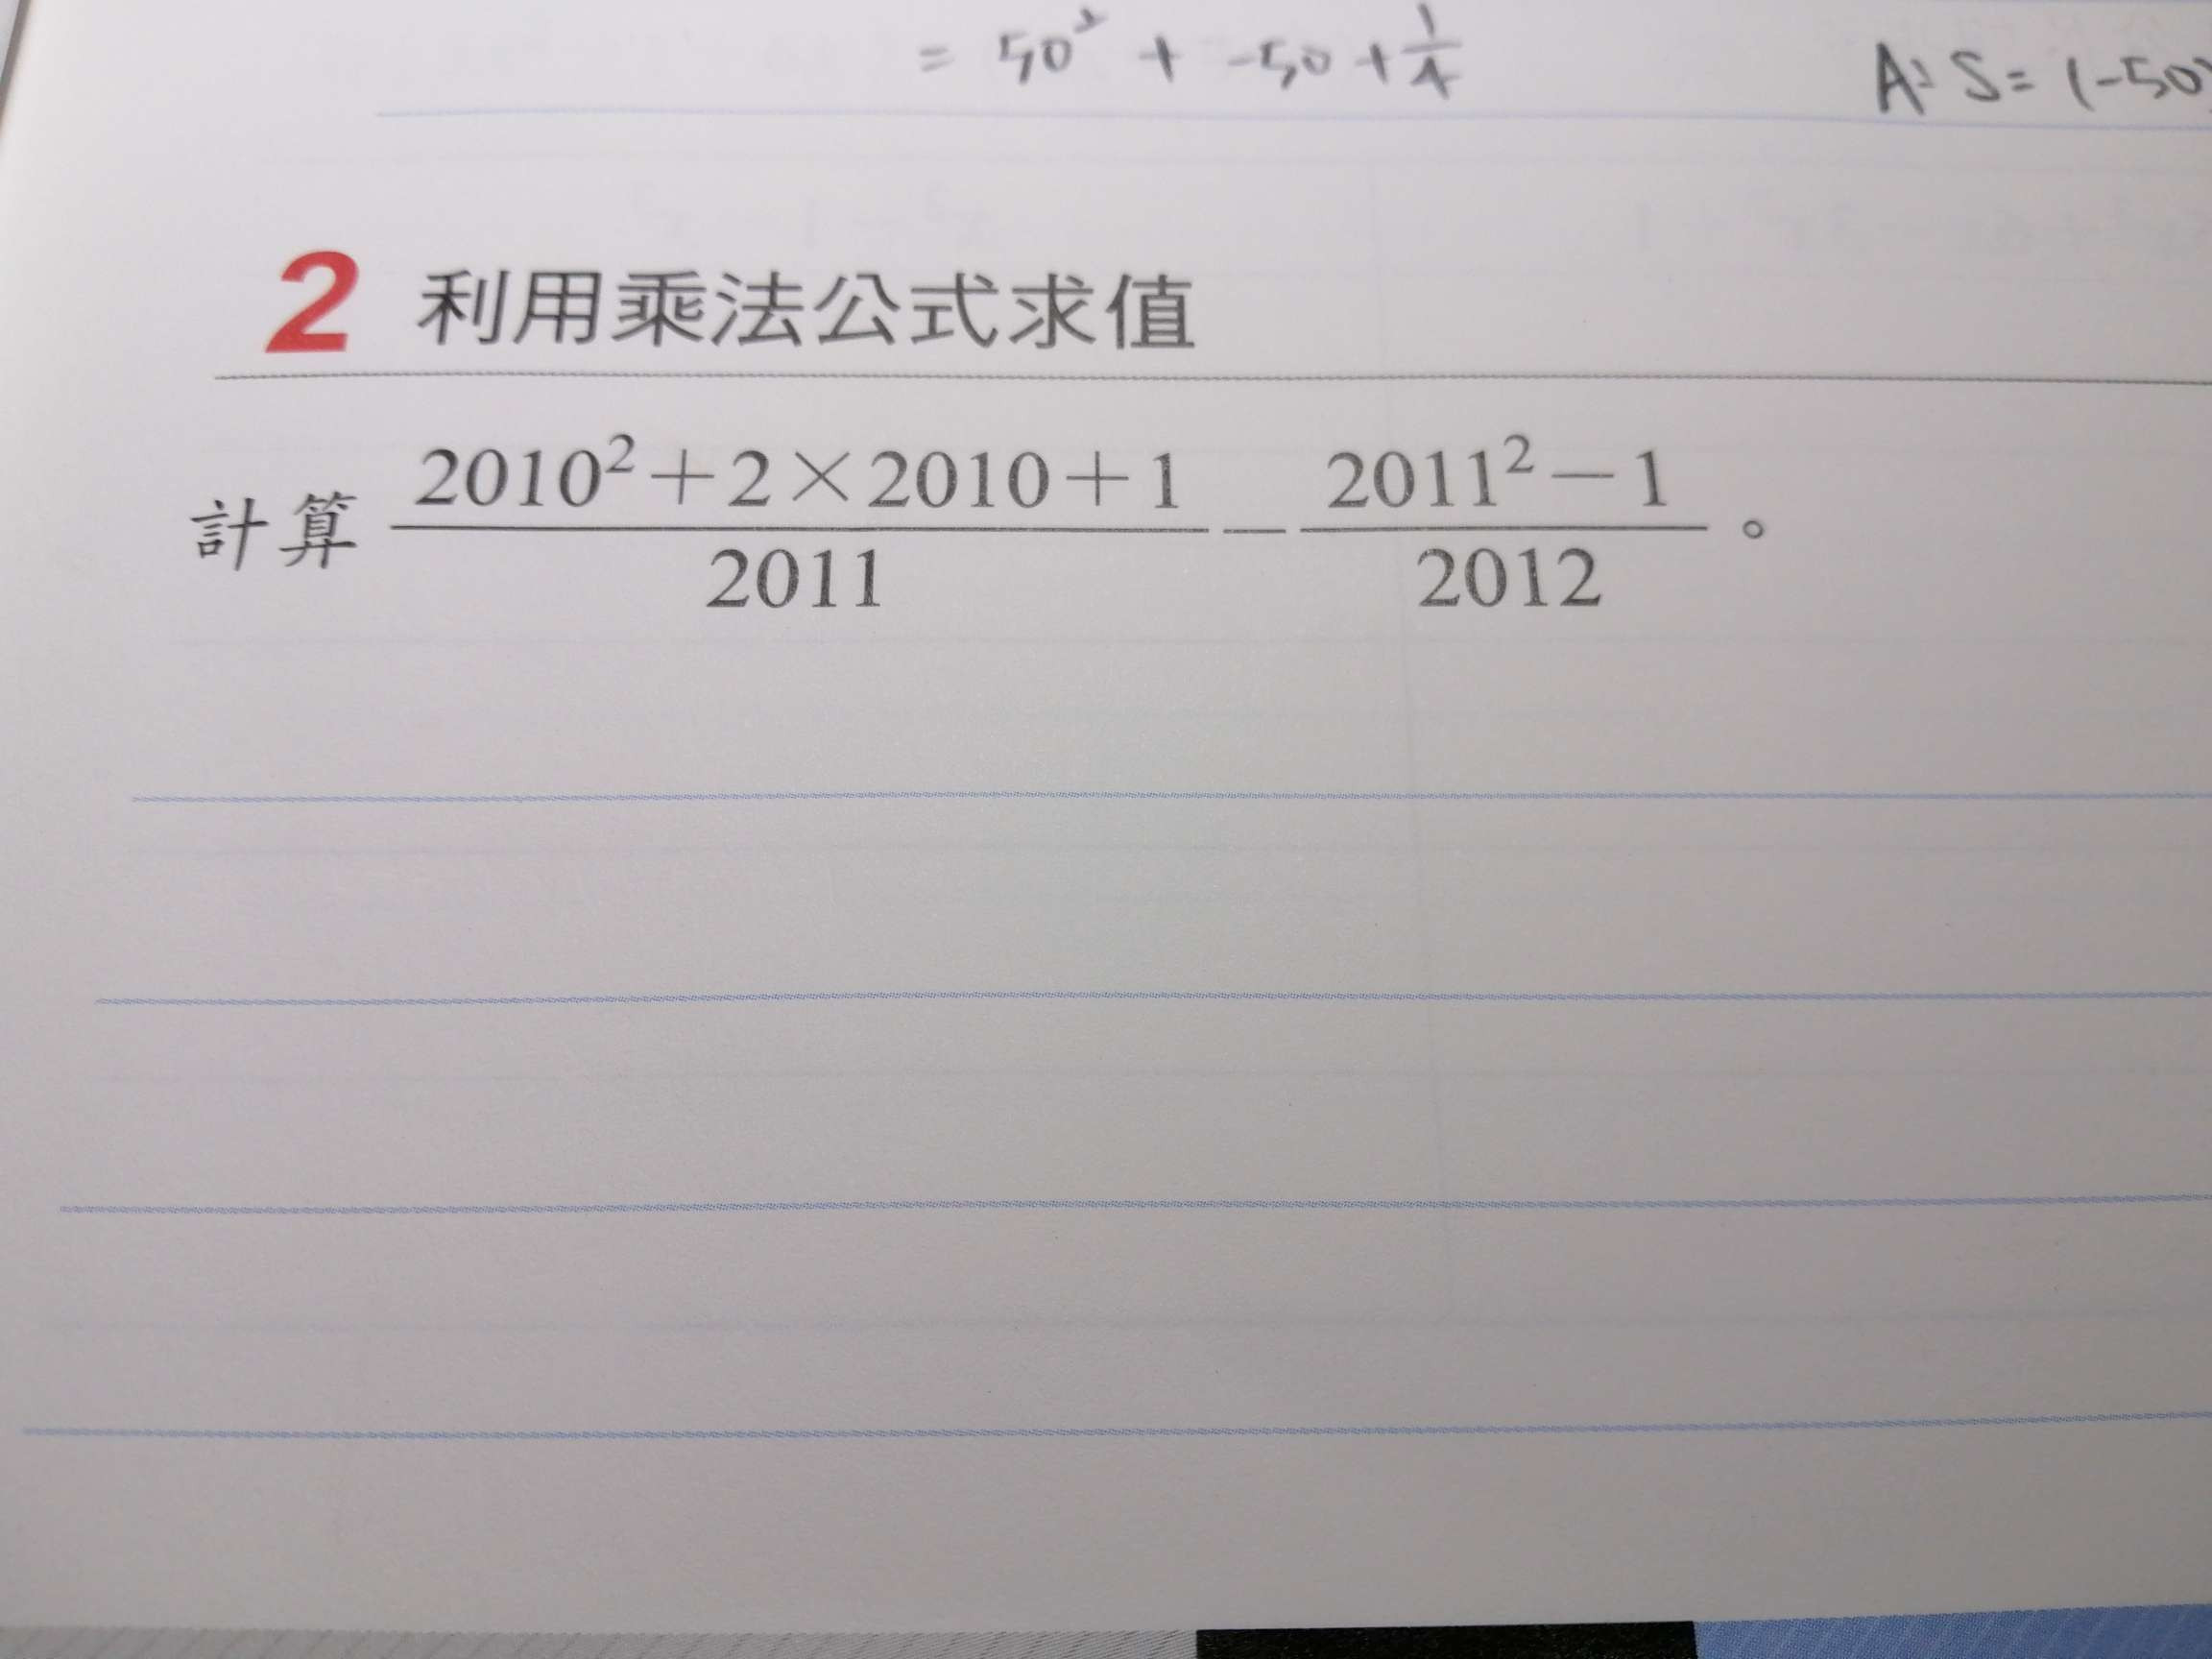 = 50² + -50 + 1/4
A: S = (-50)
2 利用乘法公式求值
計算 (2010²+2×2010+1)/2011 − (2011²−1)/2012。